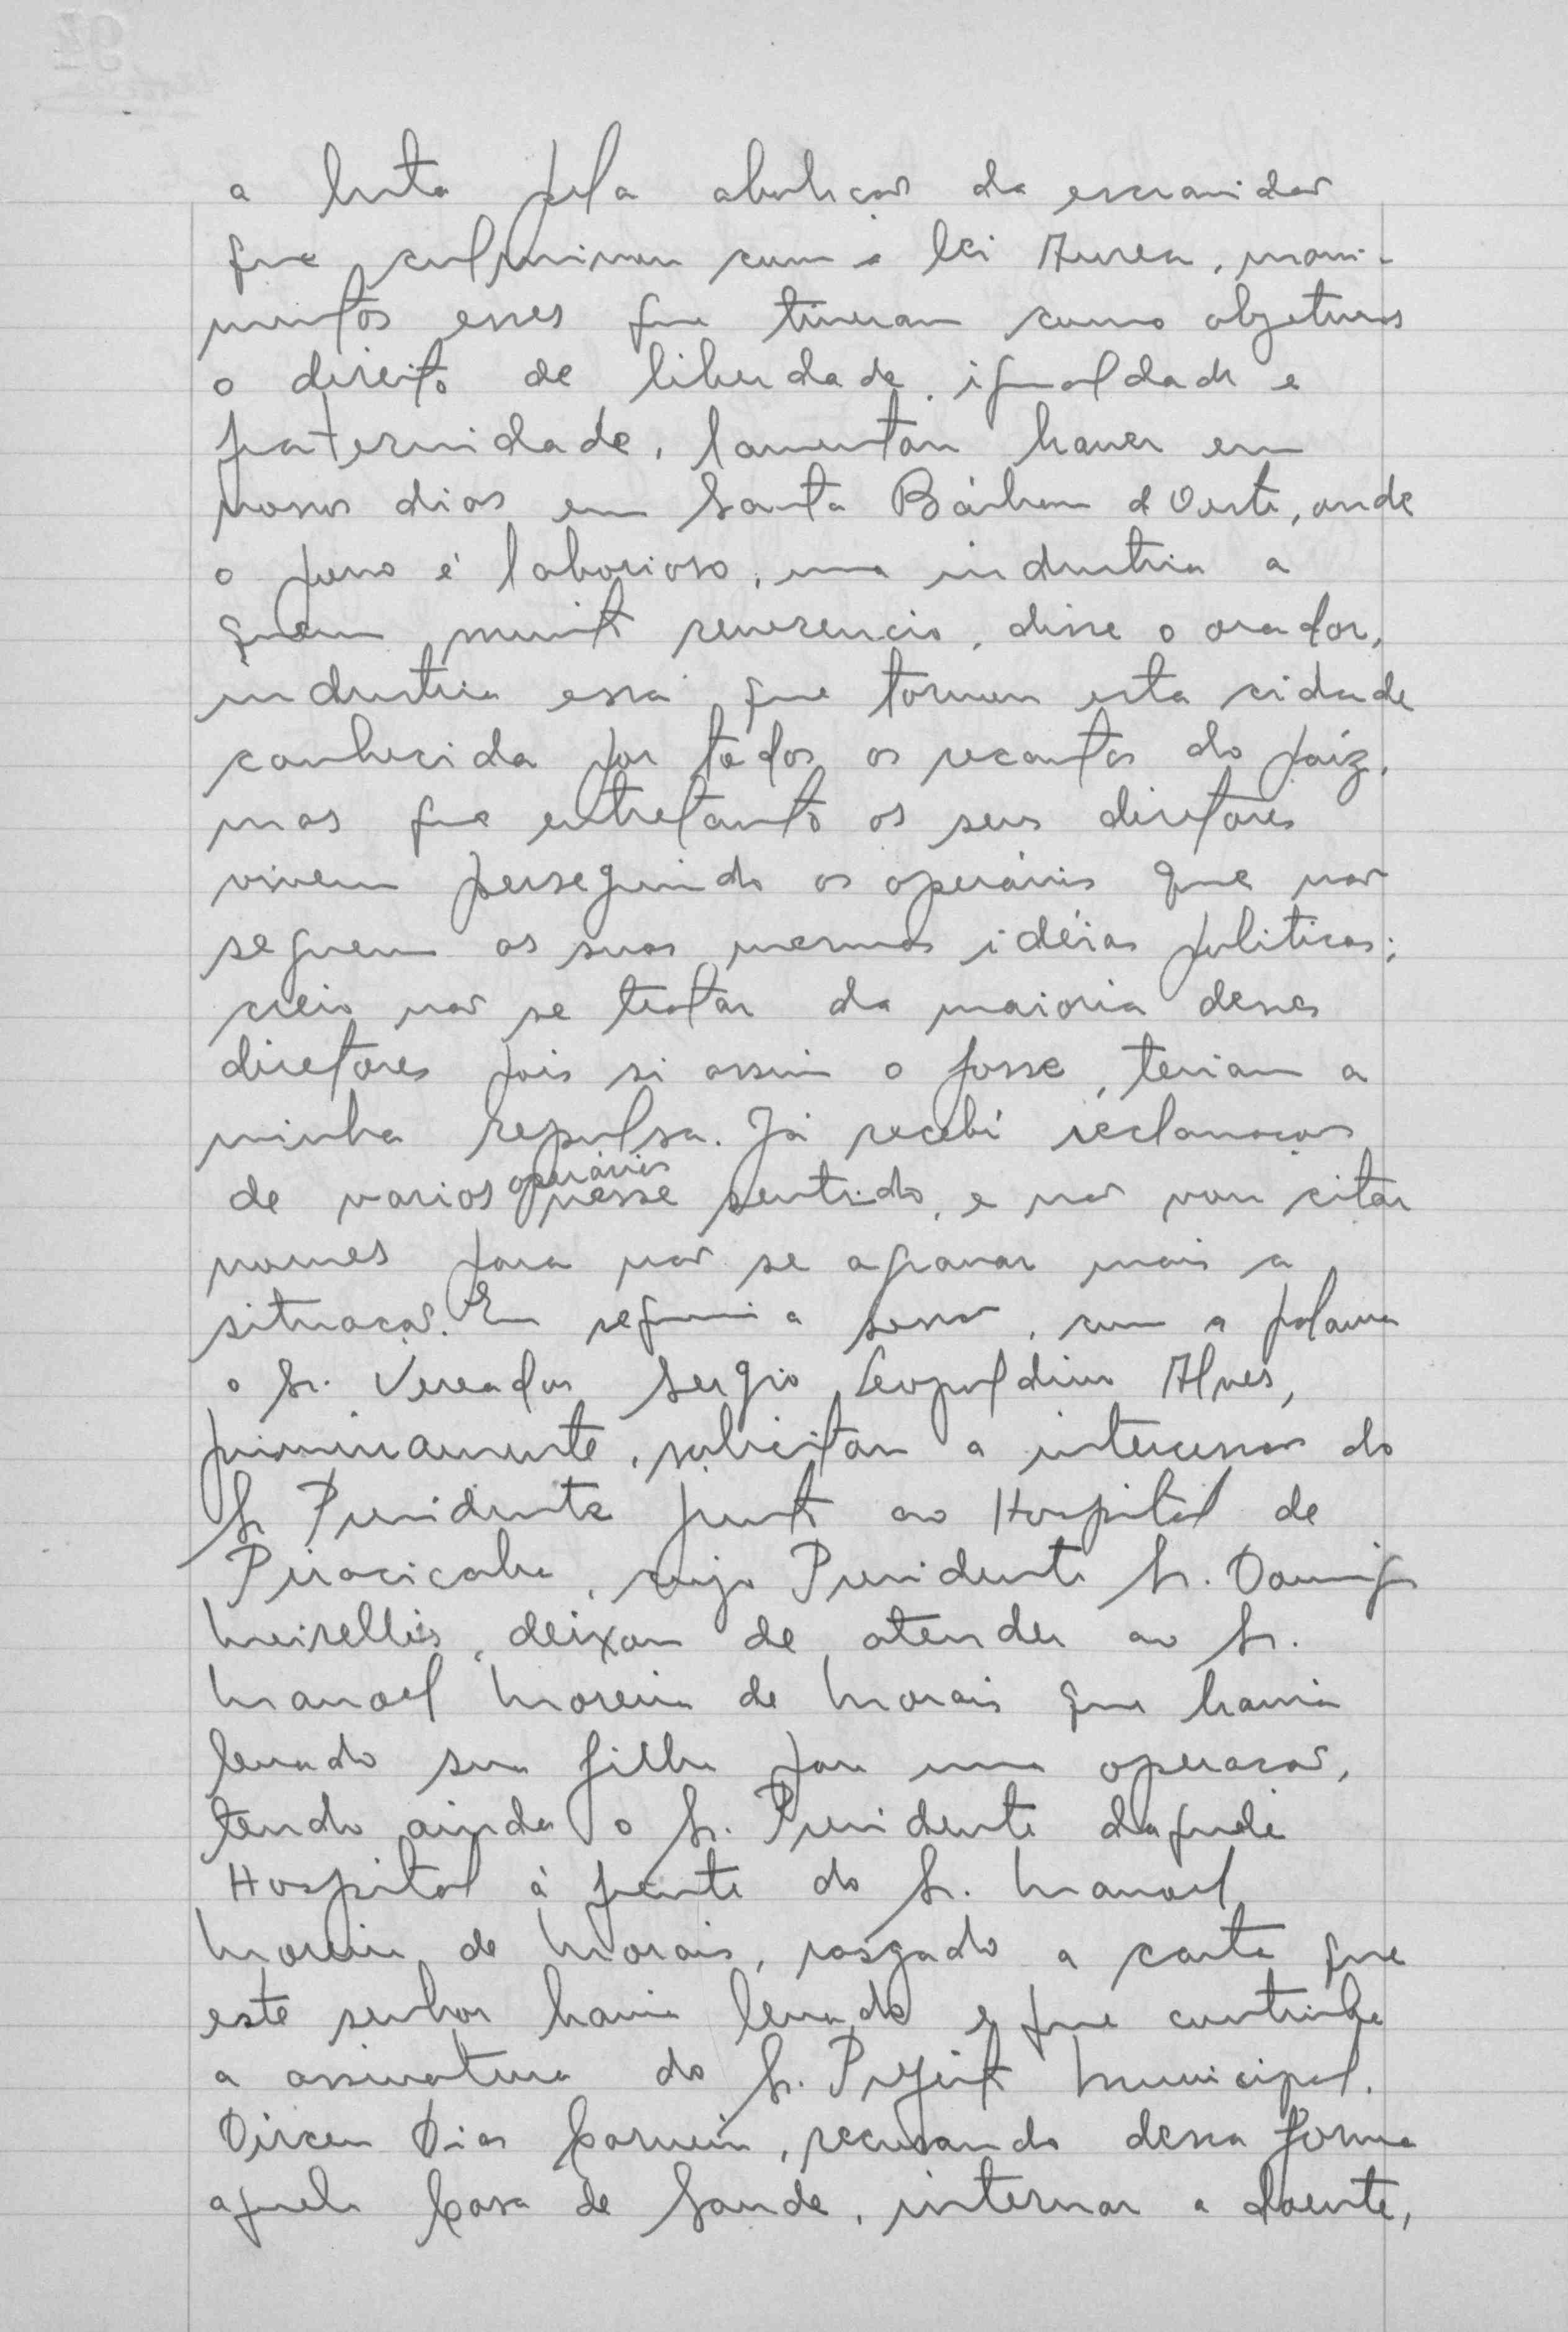 a luta pela abolição da escravidão
que culminou com a lei Aurea, movi-
mentos esses que tiveram como objetivos
o direito de liberdade, igualdade e
fraternidade, lamentou haver em
nossos dias em Santa Bárbara d'Oeste, onde
o povo é laborioso, uma industria a
quem muito reverencio, disse o orador,
industria essa que tornou esta cidade
conhecida por todos os recantos do paíz,
mas que entretanto os seus diretores
vivem perseguindo os operários que não
seguem as suas mesmas idéias politicas;
creio não se tratar da maioria desses
diretores pois si assim o fosse, teriam a
minha repulsa. Já recebí reclamações
de varios operários nesse sentido, e não vou citar
nomes para não se agravar mais a
situação. Em seguida a sessão, com a palavra
o Sr. Vereador Sergio Leopoldino Alves,
primeiramente, solicitou a intercessão do
Sr Presidente junto ao Hospital de
Piracicaba, cujo Presidente Sr. Domingos
Meirelles, deixou de atender ao Sr.
Manoel Moreira de Morais que havia
levado sua filha para uma operação,
tendo ainda o Sr. Presidente daquele
Hospital à frente do Sr. Manoel
Moreira de Morais, rasgado a carta que
este senhor havia levado e que continha
a assinatura do Sr. Prefeito Municipal.
Dirceu Dias Carneiro, recusando dessa forma
aquela Casa de Saude, internar a doente,